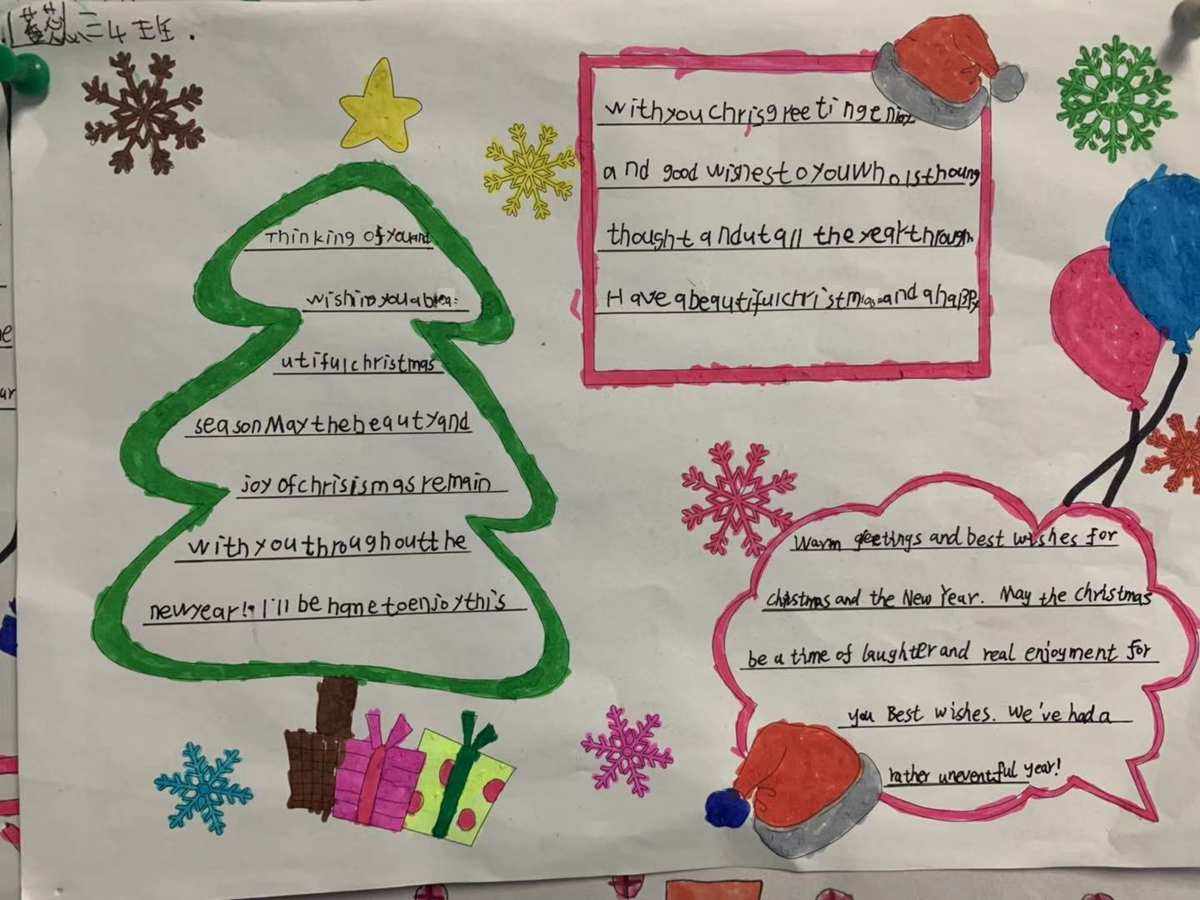 三4班.
Thinking of youand
wishinyouabea:
utifulchristmas
seasonMaythebeautyand
joyofchrisismasremain
withyouthroughoutthe
newyear! I'll be hometoenjoythis
withyouchrisgreetingenjoy
and good wishestoyouwhoisthoung
thought andutall theyearthrough
Haveabeautifulchristmasandahappy
Warm greetings and best wishes for
christmas and the New Year. May the christmas
be a time of laughter and real enjoyment for
you Best wishes. We've had a
rather uneventful year!